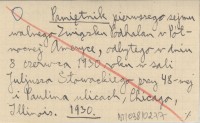 O Pamiętnik pierwszego sejmu
walnego Związku Podhalan w Pół-
nocnej Ameryce, odbytego w dniu
8 czerwca 1930 roku w sali
Juljusza Słowackiego przy 48-mej
i Paulina ulicach, Chicago,
Illinois. 1930.